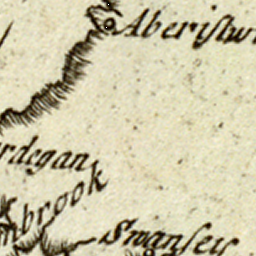 Aberiſtw
rdegan
mbrook
Swanſey